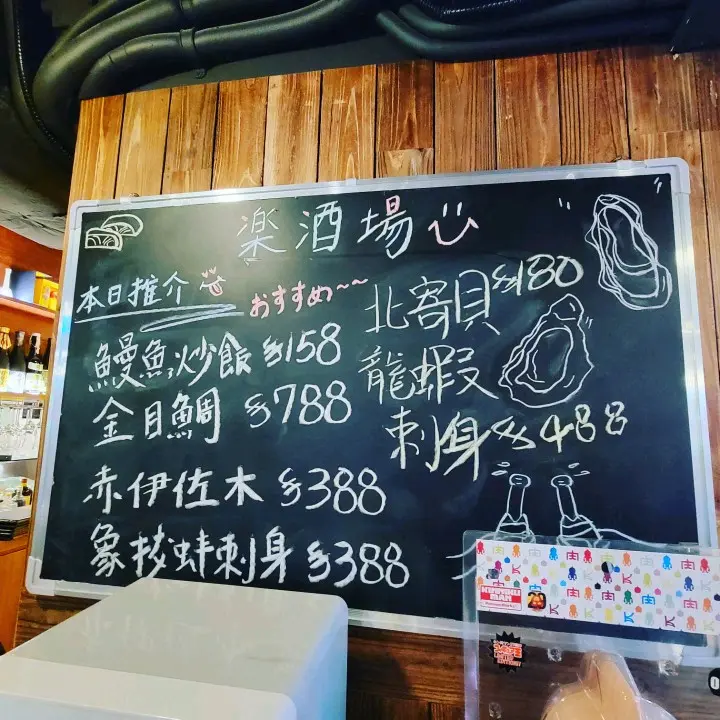 楽酒場
本日推介
おすすめ~~
鰻魚炒飯 $158
金目鯛 $788
赤伊佐木 $388
象拔蚌刺身 $388
北寄貝 $180
龍蝦
刺身 $488
KINNIKUMAN